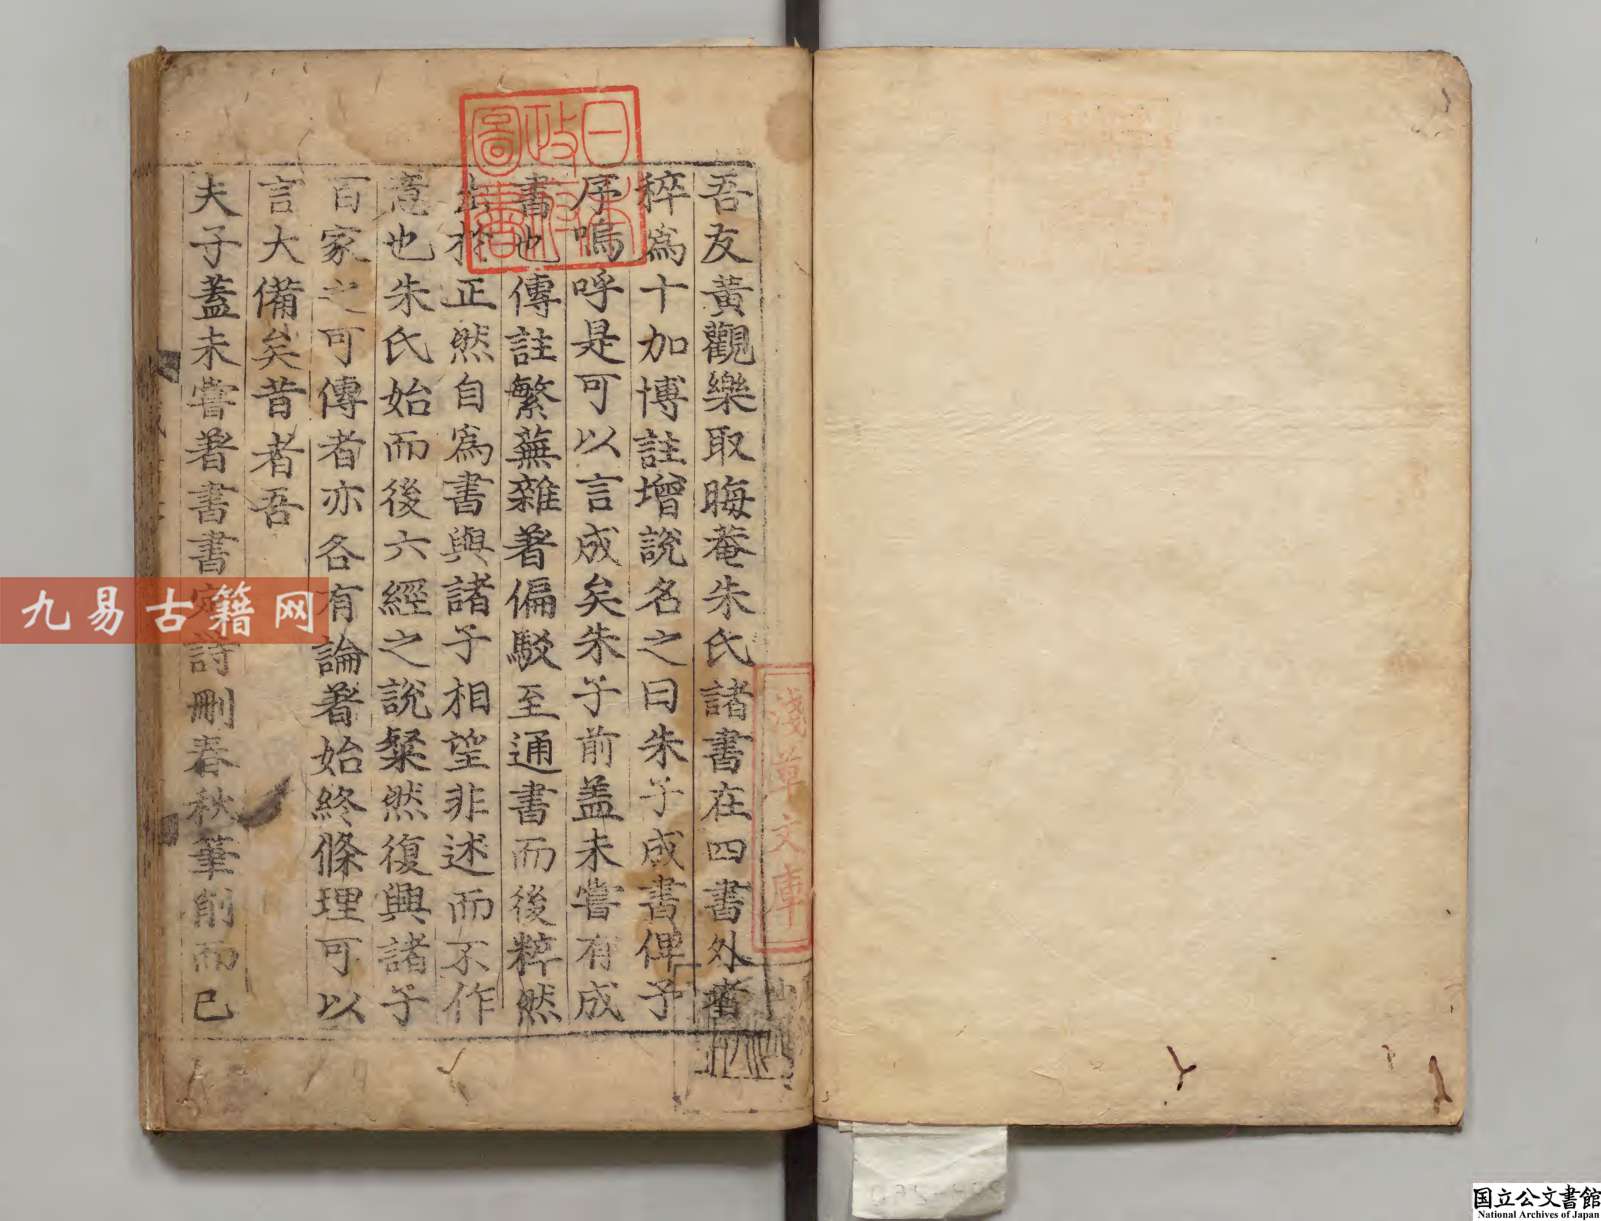 吾友黃觀樂取晦菴朱氏諸書在四書外者
稡爲十加博註增說名之曰朱子成書俾予
序嗚呼是可以言成矣朱子前蓋未嘗有成
書也傳註繁蕪雜著偏駁至通書而後粹然
出於正然自爲書與諸子相望非述而不作
意也朱氏始而後六經之說粲然復興諸子
百家之可傳者亦各有論著始終條理可以
言大備矣昔者吾
夫子蓋未嘗著書書定詩刪春秋筆削而已
日本政府圖書
淺草文庫
九易古籍网
国立公文書館
National Archives of Japan